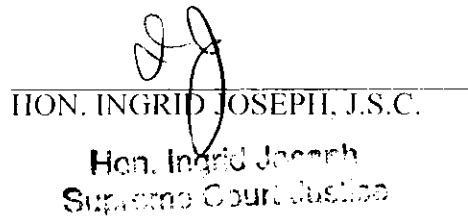 HON. INGRID JOSEPH, J.S.C.
Hon. Ingrid Joseph
Supreme Court Justice